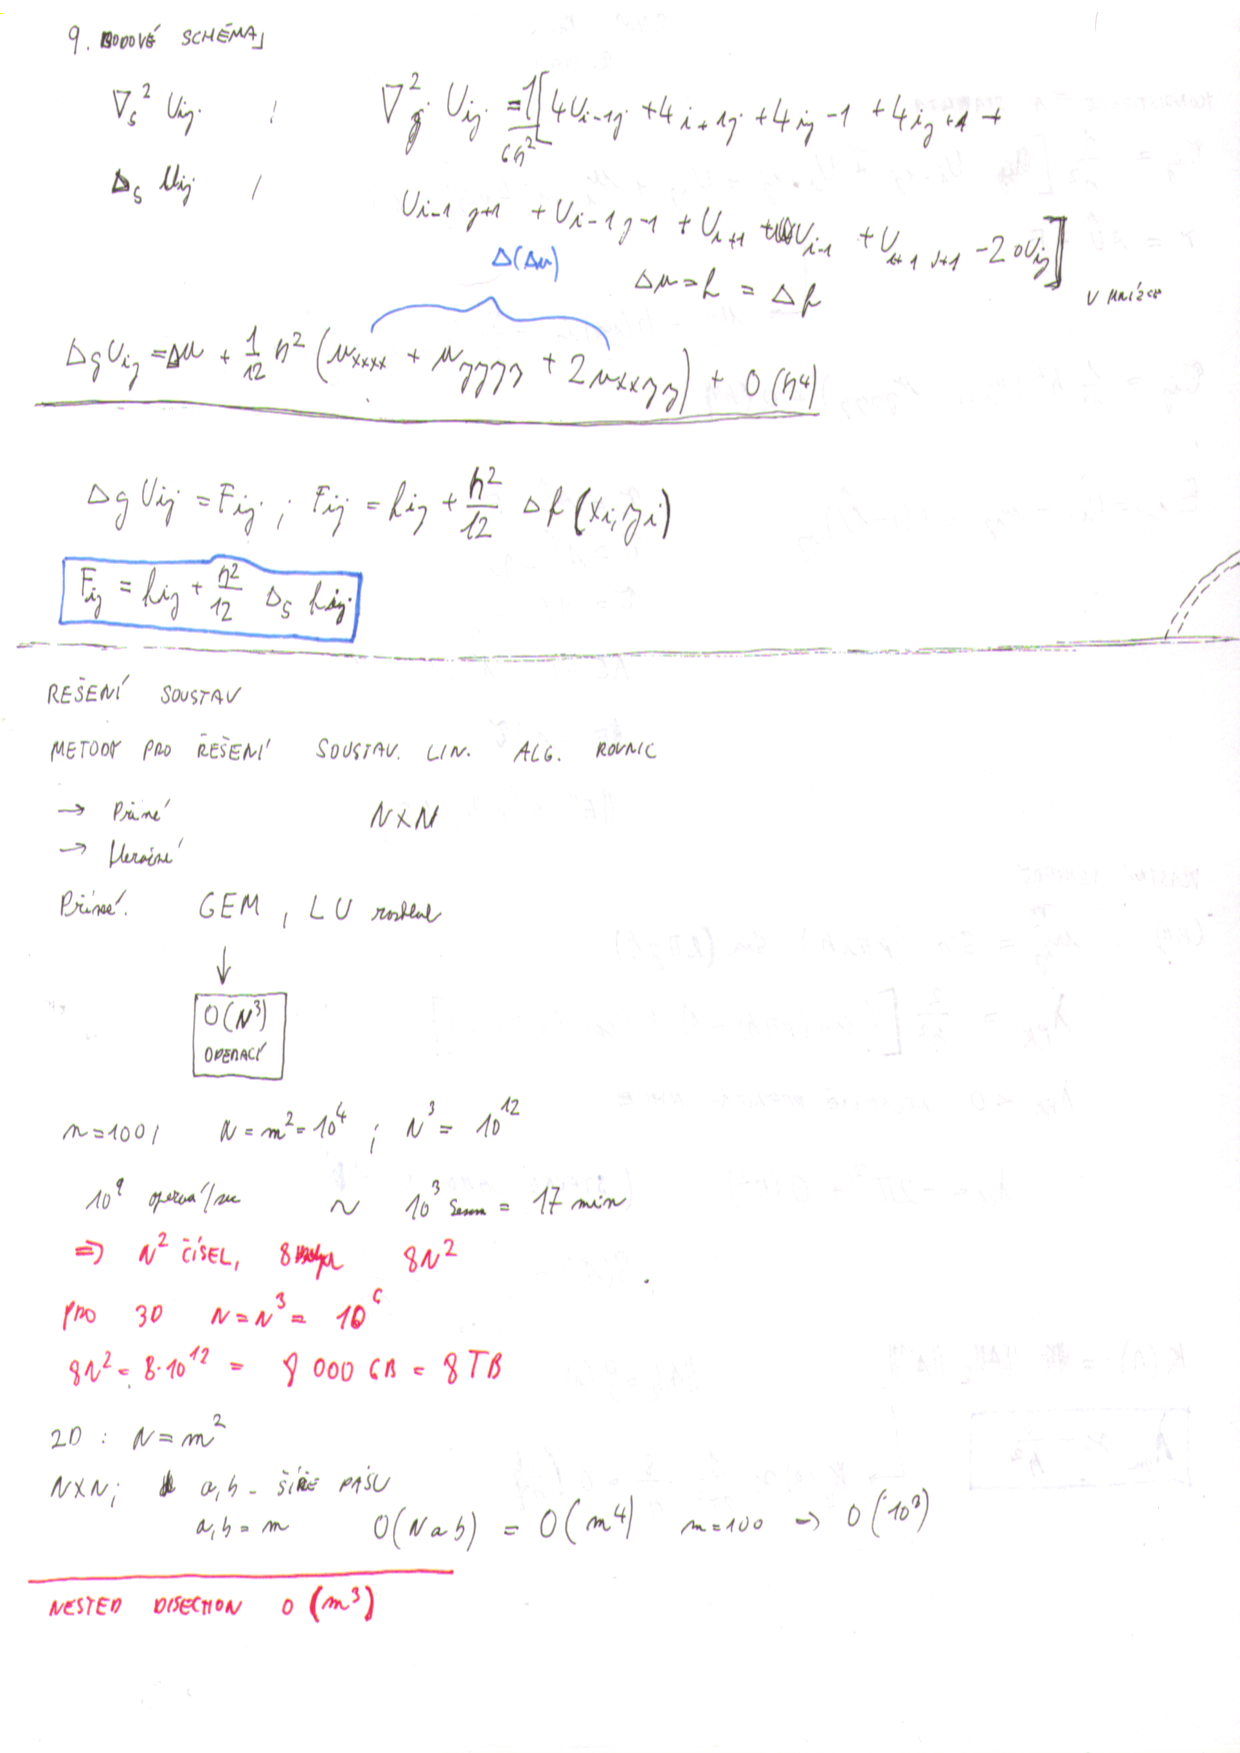 9. BODOVÉ SCHÉMA
∇₅² Uij ; ∇₉² Uij = 1/6h² [4Ui-1j + 4i+1j + 4ij-1 + 4ij+1 +
Δ₅ Uij / Ui-1 j+1 + Ui-1 j-1 + Ui+1 Ui-1 + Ui+1 j+1 - 20Uij]
Δ(Δu)
Δu = f = Δf
Δ₉Uij = Δu + 1/12 h² (uxxxx + uyyyy + 2uxxyy) + O(h⁴)
Δ₉Uij = Fij ; Fij = fij + h²/12 Δf(xi, yi)
Fij = fij + h²/12 Δ₅ fij
ŘEŠENÍ SOUSTAV
METODY PRO ŘEŠENÍ SOUSTAV. LIN. ALG. ROVNIC
→ Přímé N×N
→ Iterační
Přímé. GEM, LU rozklad
↓
O(N³)
OPERACÍ
m=100, N = m² = 10⁴ ; N³ = 10¹²
10⁹ operací/sec ~ 10³ = 17 min
⇒ N² ČÍSEL, 8 8N²
PRO 3D N = N³ = 10⁶
8N² = 8·10¹² = 8 000 GB = 8 TB
2D : N = m²
N×N; a,b - ŠÍŘE PÁSU
a,b = m O(Nab) = O(m⁴) m=100 → O(10⁸)
NESTED DISECTION O(m³)